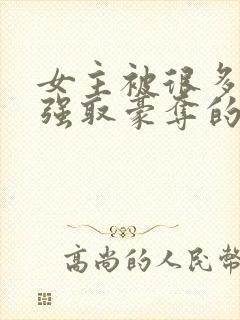 女主被很多
强取豪夺的
高尚的人民幣